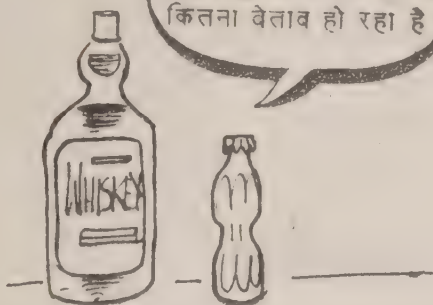 कितना बेताब हो रहा है
WHISKEY